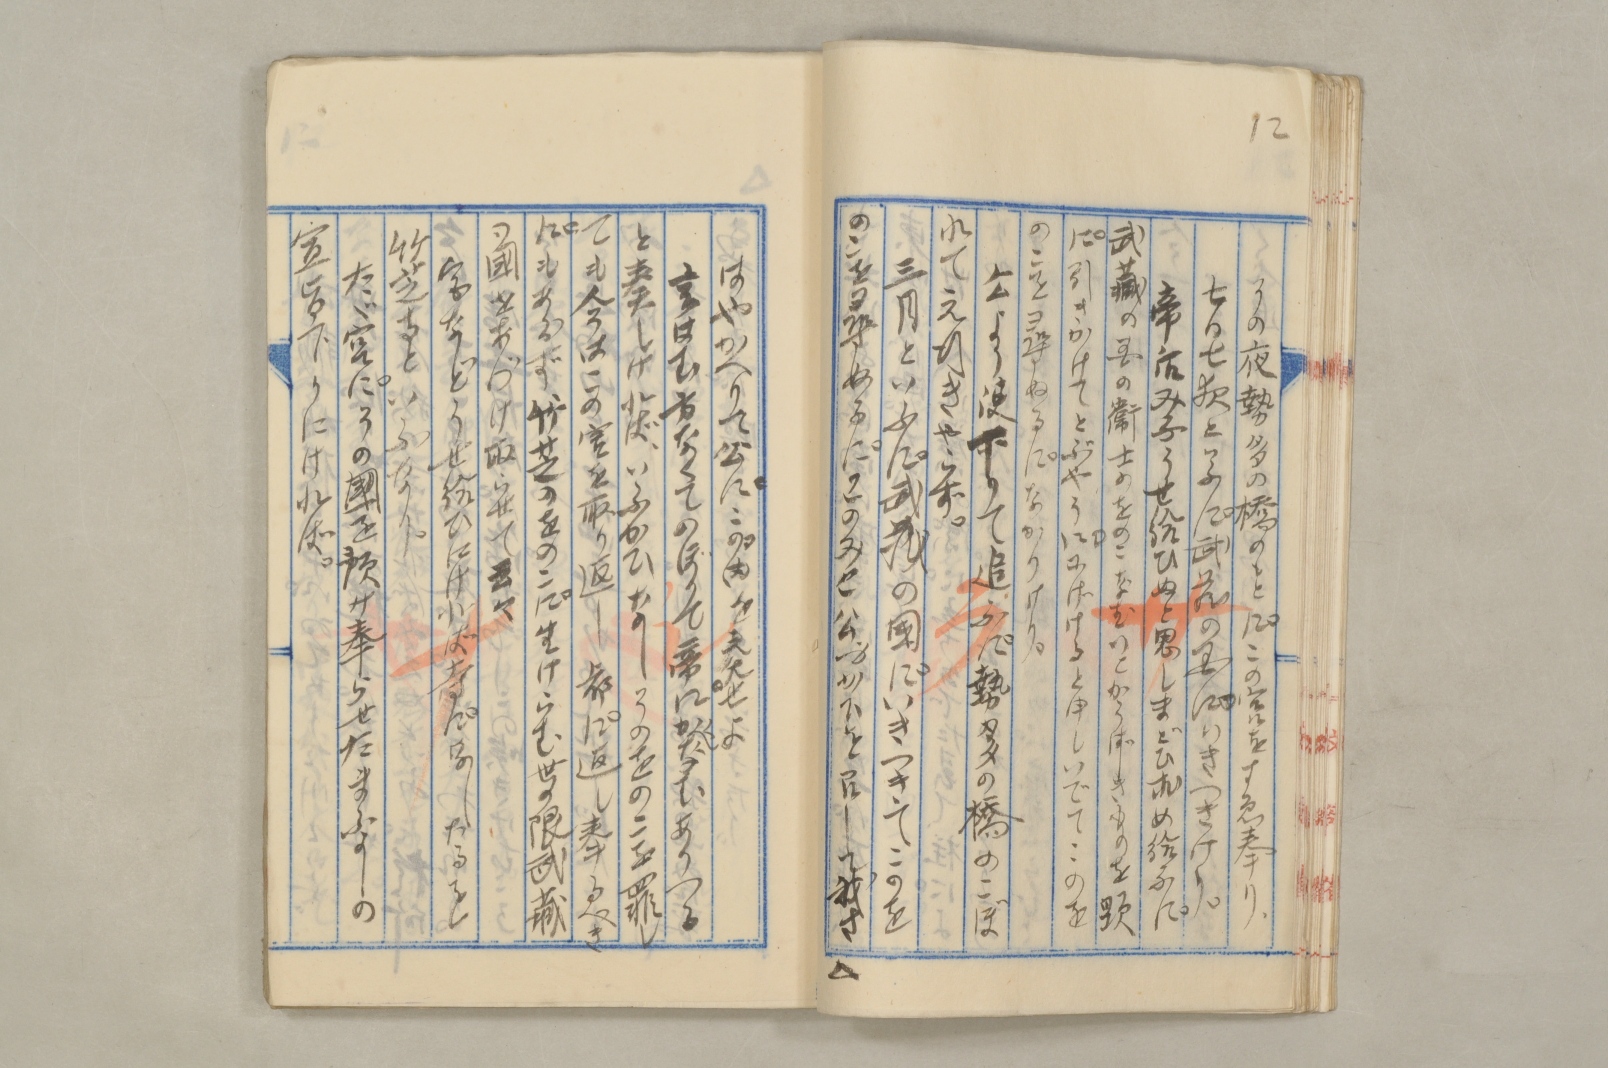 12
その夜勢多の橋のもとに、この宮をすゑ奉り、
七日七夜と云に、武蔵の国にいきつきけり。
帝后みこうせ給ひぬと思しまどひ求め給ふに、
武藏の国の衛士のをのこなむいとかうばしきものを頸
に引きかけてとぶやうににげけると申しいでてこのを
のこを尋ぬるに、なかりけり。
公より使下りて追ふに、勢多の橋のこぼ
れてえ行きやらず。
三月といふに、武蔵の國にいきつきてこのを
のこを尋ぬるに、このみこ公使を召して我さ
はやかへりて公にこの由を奏せよ
と奏しければ、いふかひなしそのをのこを罪し
ても今はこの宮を取り返し都に返し奉るべき
にもあらず竹芝のをのこに生けらむ世の限武藏
の國をあづけ取らせて云々
宮などうせ給ひにければ寺になしたるを
竹芝寺といふなり。
たゞ宮に、その國を預け奉らせたまふよしの
宣旨下りにければ。